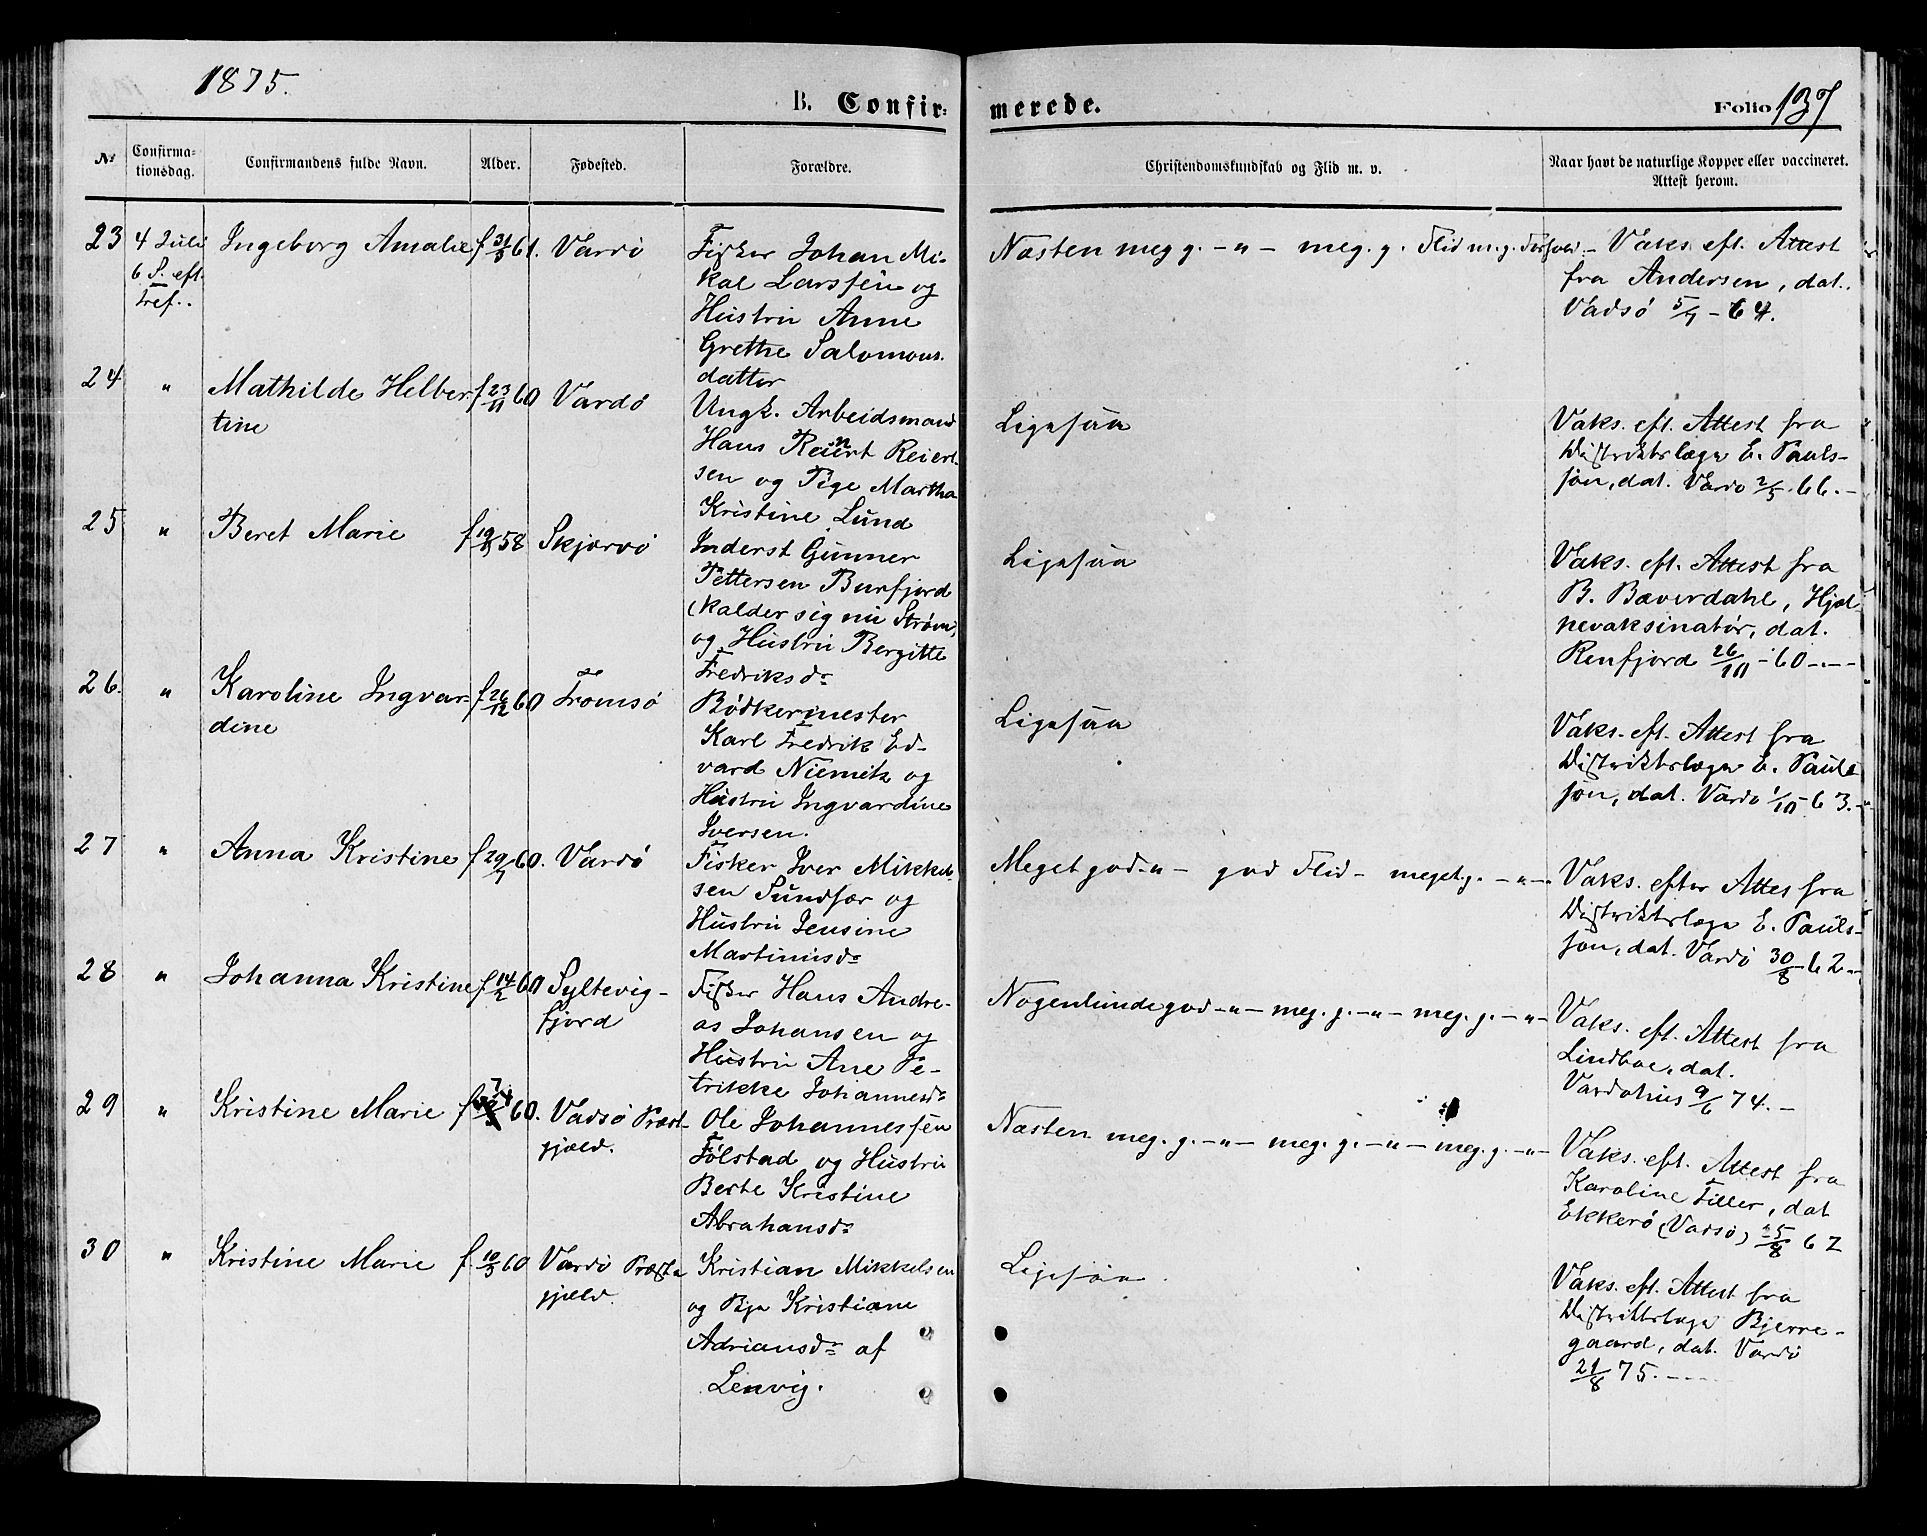 1875.
B. Confir-
merede.
Folio 137
No
Confirma-
tionsdag.
Confirmandens fulde Navn.
Alder.
Fødested.
Forældre.
Christendomskundskab og Flid m. v.
Naar havt de naturlige Kopper eller vaccineret.
Attest herom.
23
4 Juli
6 S. eft.
Tref..
Ingeborg Amalie
f. 31/3 61.
Vardö
Fisker Johan Mi-
kal Larssen og
Hustru Anne
Grethe Salomons-
datter
Næsten meg g. -"- meg. g. Flid m. g. Forhold. -
Vaks. eft. Attest
fra Andersen, dat.
Vadsö 5/7 - 64.
24
"
Mathilde Helber
tine
f 23/11 60
Vardö
Ungk. Arbeidsmand
Hans Reinert Reiert-
sen og Pige Martha
Kristine Lund
Ligesaa
Vaks. eft. Attest fra
Distriktslæge E. Pauls-
son, dat. Vardö 2/5. 66. -
25
"
Beret Marie
58
Skjærvö
Inderst Gunner
Pettersen Burfjord
(kalder sig nu Ström)
og Hustru Bergitte
Fredriksdr
Ligesaa
Vaks. eft. Attest fra
B. Bæverdahl, Hjæl
pevaksinatör, dat.
Renfjord 26/10 - 60 ----
26.
"
Karoline Ingvar-
dine
f. 26/12 60
Tromsö
Bödkermester
Karl Fredrik Ed-
vard Niemitz og
Hustru Ingvardine
Iversen.
Ligesaa
Vaks. eft. Attest fra
Distriktslæge E. Pauls
son, dat. Vardö 1/10 - 63. -
27
"
Anna Kristine
f 29/7 60.
Vardö
Fisker Iver Mikkel-
sen Sundfær og
Hustru Jensine
Martinusdr
Meget god -"- god Flid - meget g. -"-
Vaks. efter Attes fra
Distriktslæge E. Pauls-
son, dat. Vardö 30/8 - 62 --
28
"
Johanna Kristine
f. 14/2 60
Syltevig-
fjord
Fisker Hans Andre-
as Johansen og
Hustru Ane Pe-
trikke Johannesdr
Nogenlunde god -"- meg. g. -"- meg. g. -"-
Vaks. eft. Attest fra
Lindboe, dat.
Vardöhus 9/6 74. -
29
"
Kristine Marie
60.
Vadsö Præst-
gjæld.
Ole Johannessen
Fölstad og Hustru
Berte Kristine
Abrahamsdr
Næsten meg. g. -"- meg. g. -"- meg. g. -"-
Vaks. eft. Attest fra
Karoline Filler, dat
Ekkerö (Vadsö) 25/8 62
30
"
Kristine Marie
f. 10/3 60
Vardö Præste
gjæld.
Kristian Mikkelsen
og Pige Kristiane
Adriansdr af
Lenvig.
Ligesaa.
Vaks. eft. Attest fra
Distriktslæge Bjerre-
gaard, dat. Vardö
21/8 75. -----